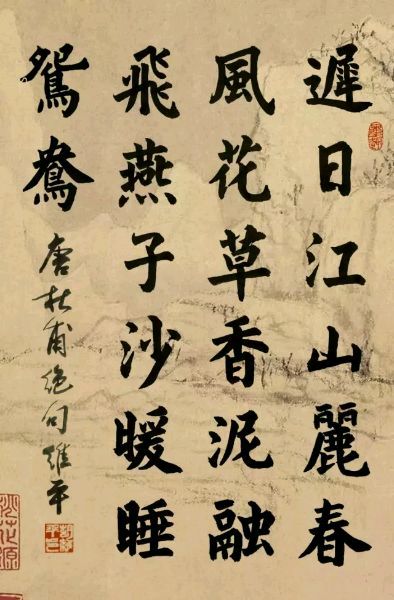 遲日江山麗春
風花草香泥融
飛燕子沙暖睡
鴛鴦
唐杜甫絶句維平
桃花源